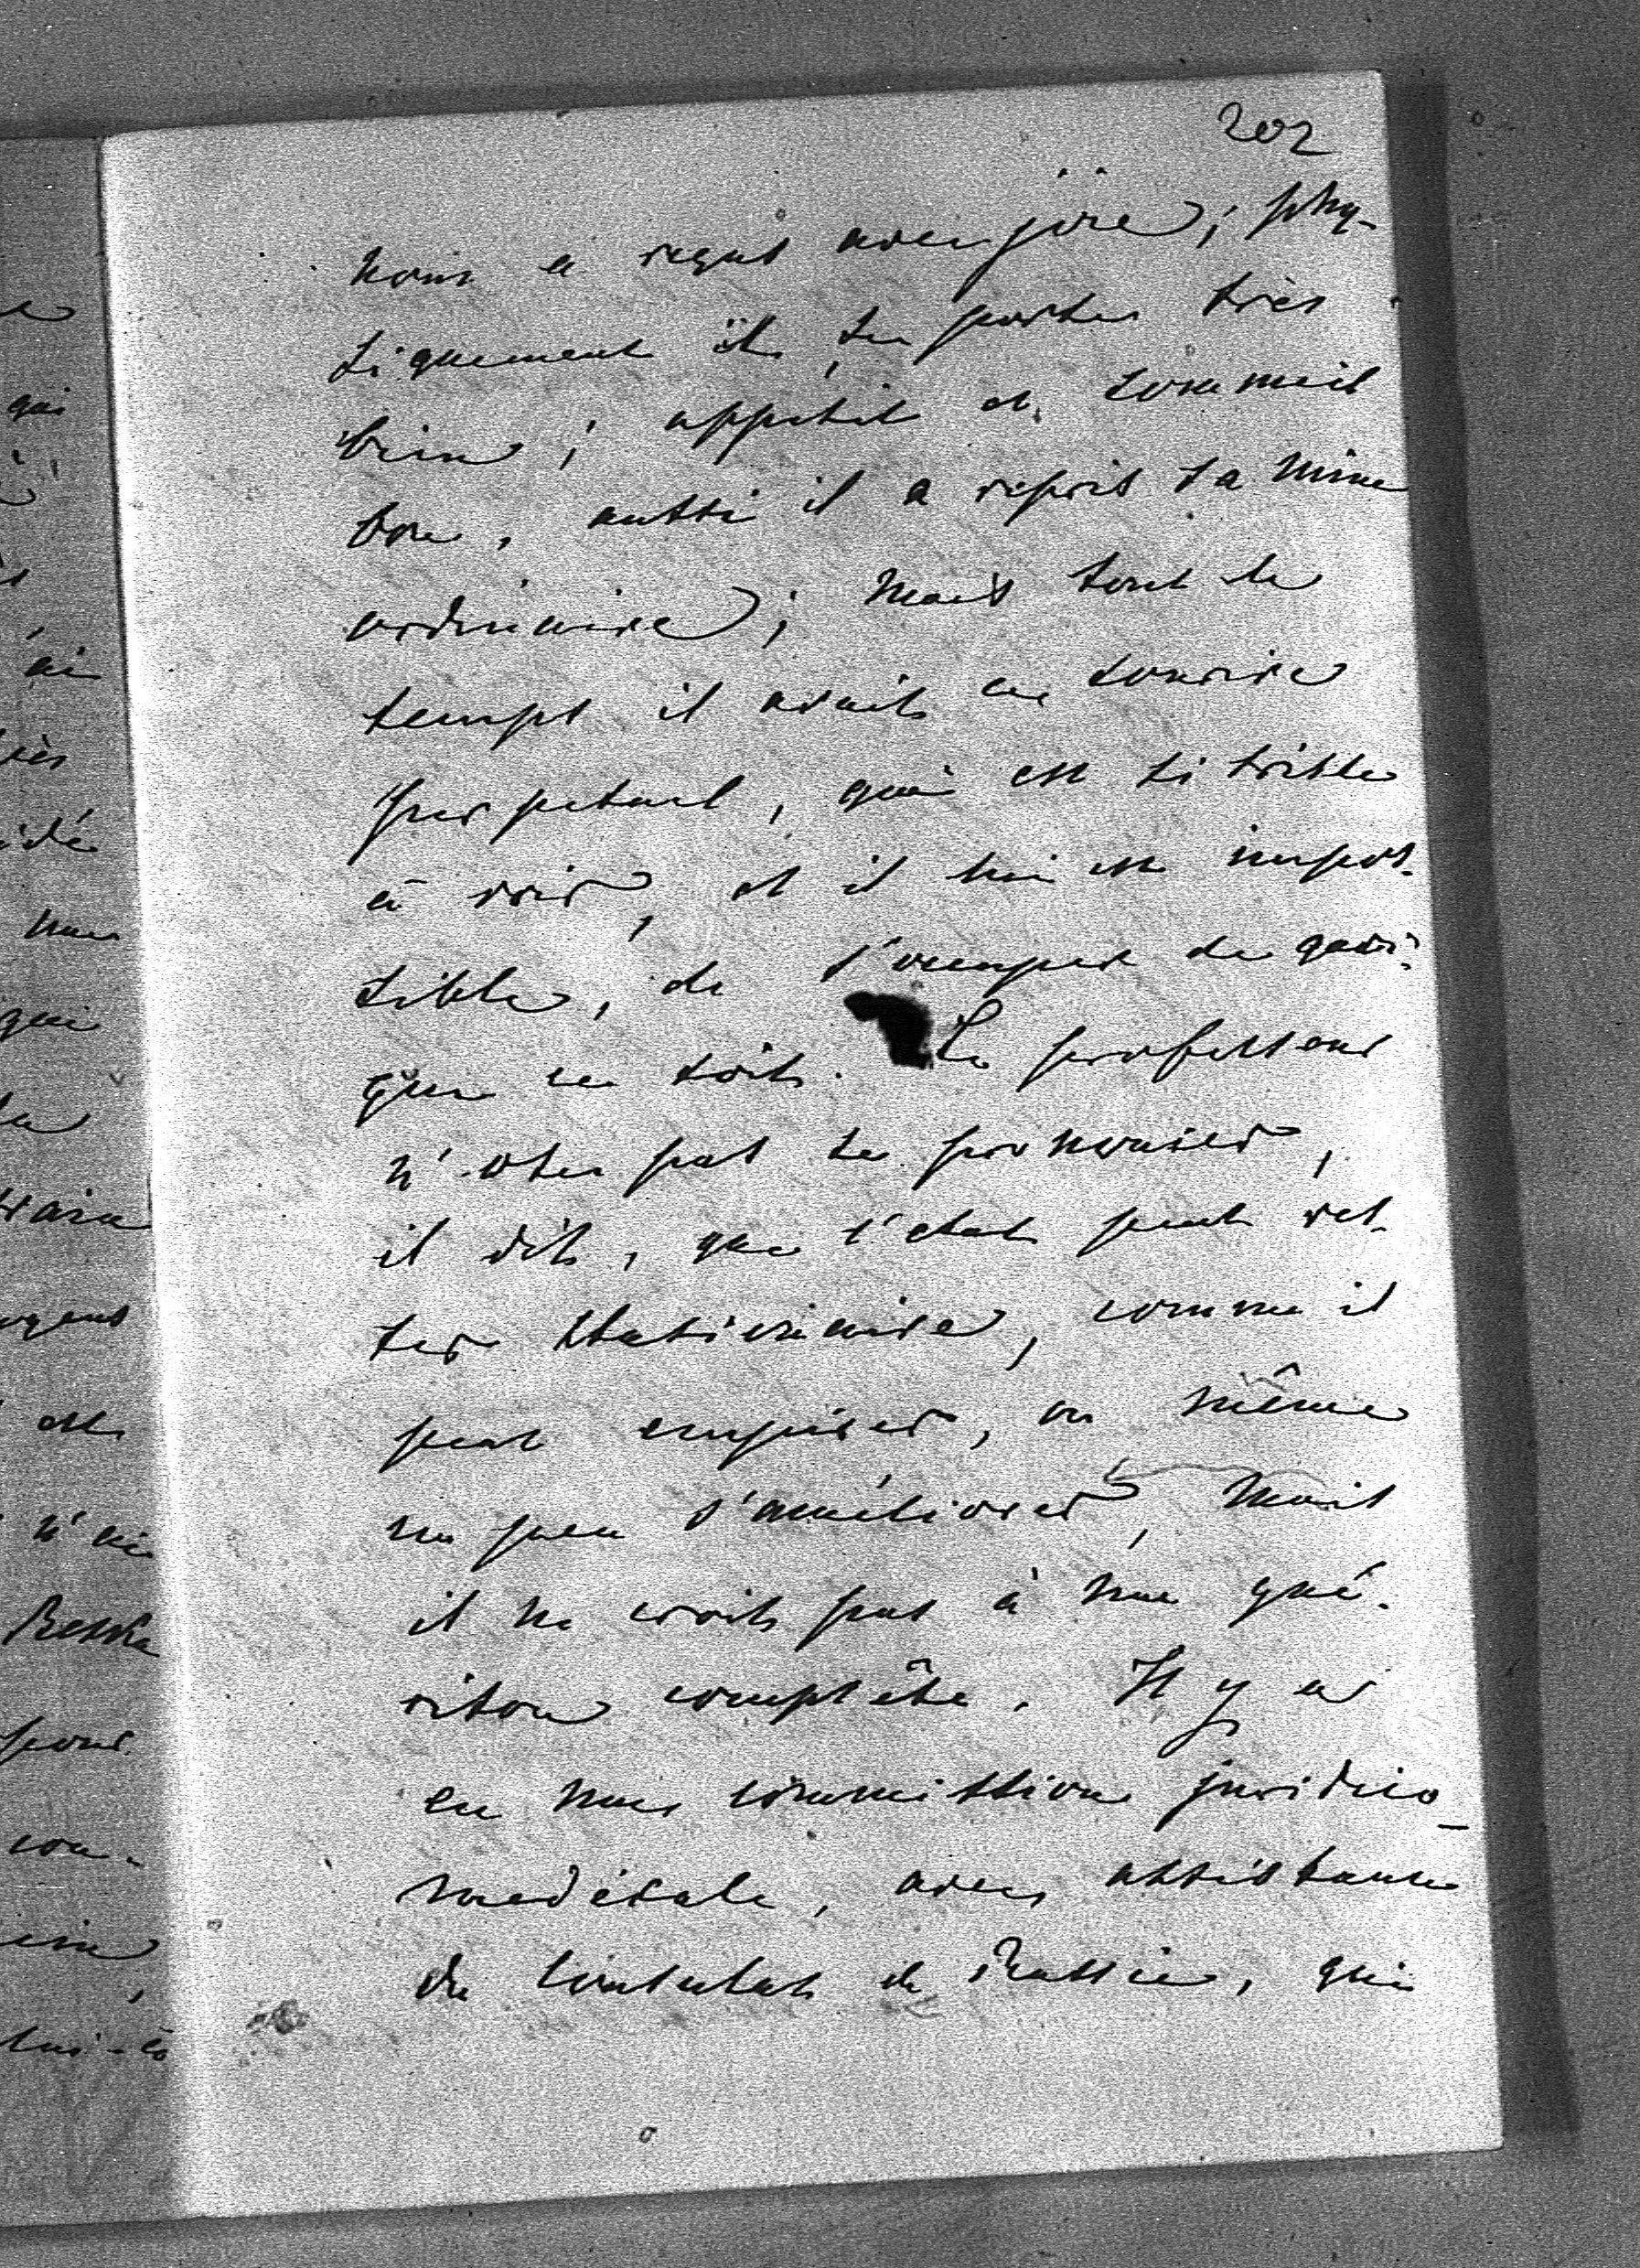 202
nous a reçus avec joie; phy-
siquement il se porte très
bien; appetit et sommeil
bon, aussi il a repris sa mine
ordinaire; mais tout le
temps il avait ce sourire
perpetuel, qui est si triste
à voir, et il lui est impos-
sible, de s'occuper de quoi-
que ce soit. Le professeur
n'ose pas se prononcer,
il dit, que l'etat peut res-
ter stationnaire, comme il
peut empirer, ou même
un peu s'améliorer, mais
il ne croit pas à une gué-
rison complête. Il y a
eu une commission juridico-
medicale, avec assistance
du Consulat de Russie, qui
e
qui
ai
très
idé
une
qui
est
n'ai
pour
con-
lui-là